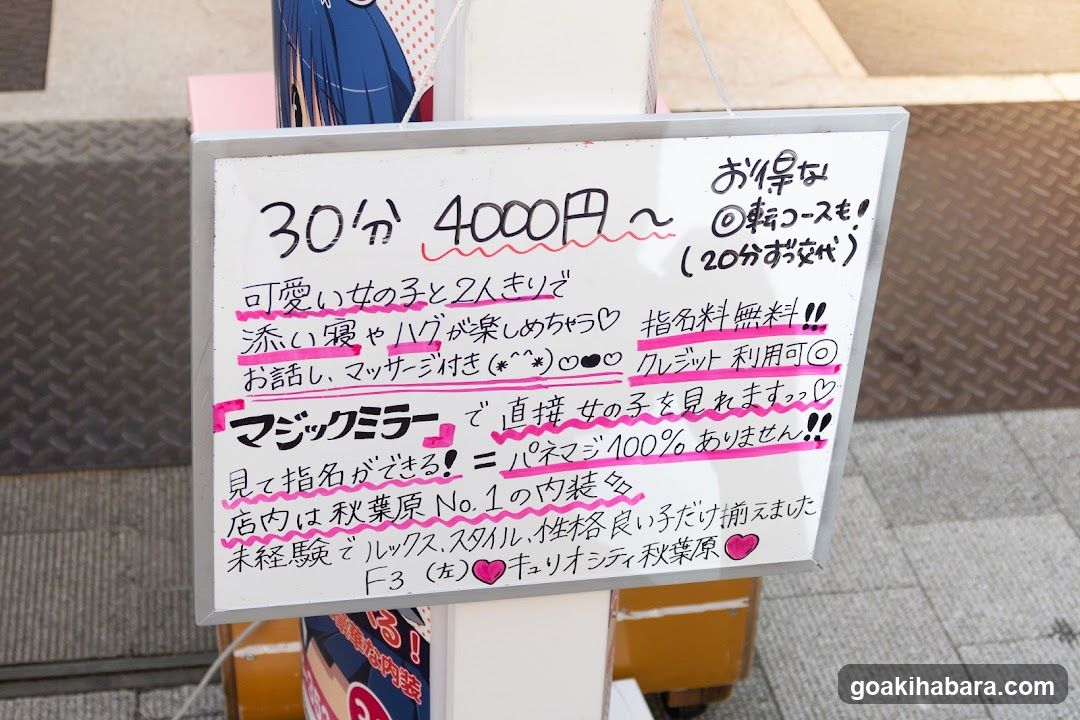 30分 4000円～
お得な
◎転コースも!
(20分ずつ交代)
可愛い女の子と2人きりで
添い寝やハグが楽しめちゃう♡
お話し、マッサージ付き(*^^*)♡●♡
指名料無料!!
クレジット利用可◎
「マジックミラー」で直接女の子を見れますっっ♡
見て指名ができる!=パネマジ100%ありません!!
店内は秋葉原No.1の内装
未経験でルックス、スタイル、性格良い子だけ揃えました
F3 (左)♥キュリオシティ秋葉原♥
る!
豪華な内装
goakihabara.com